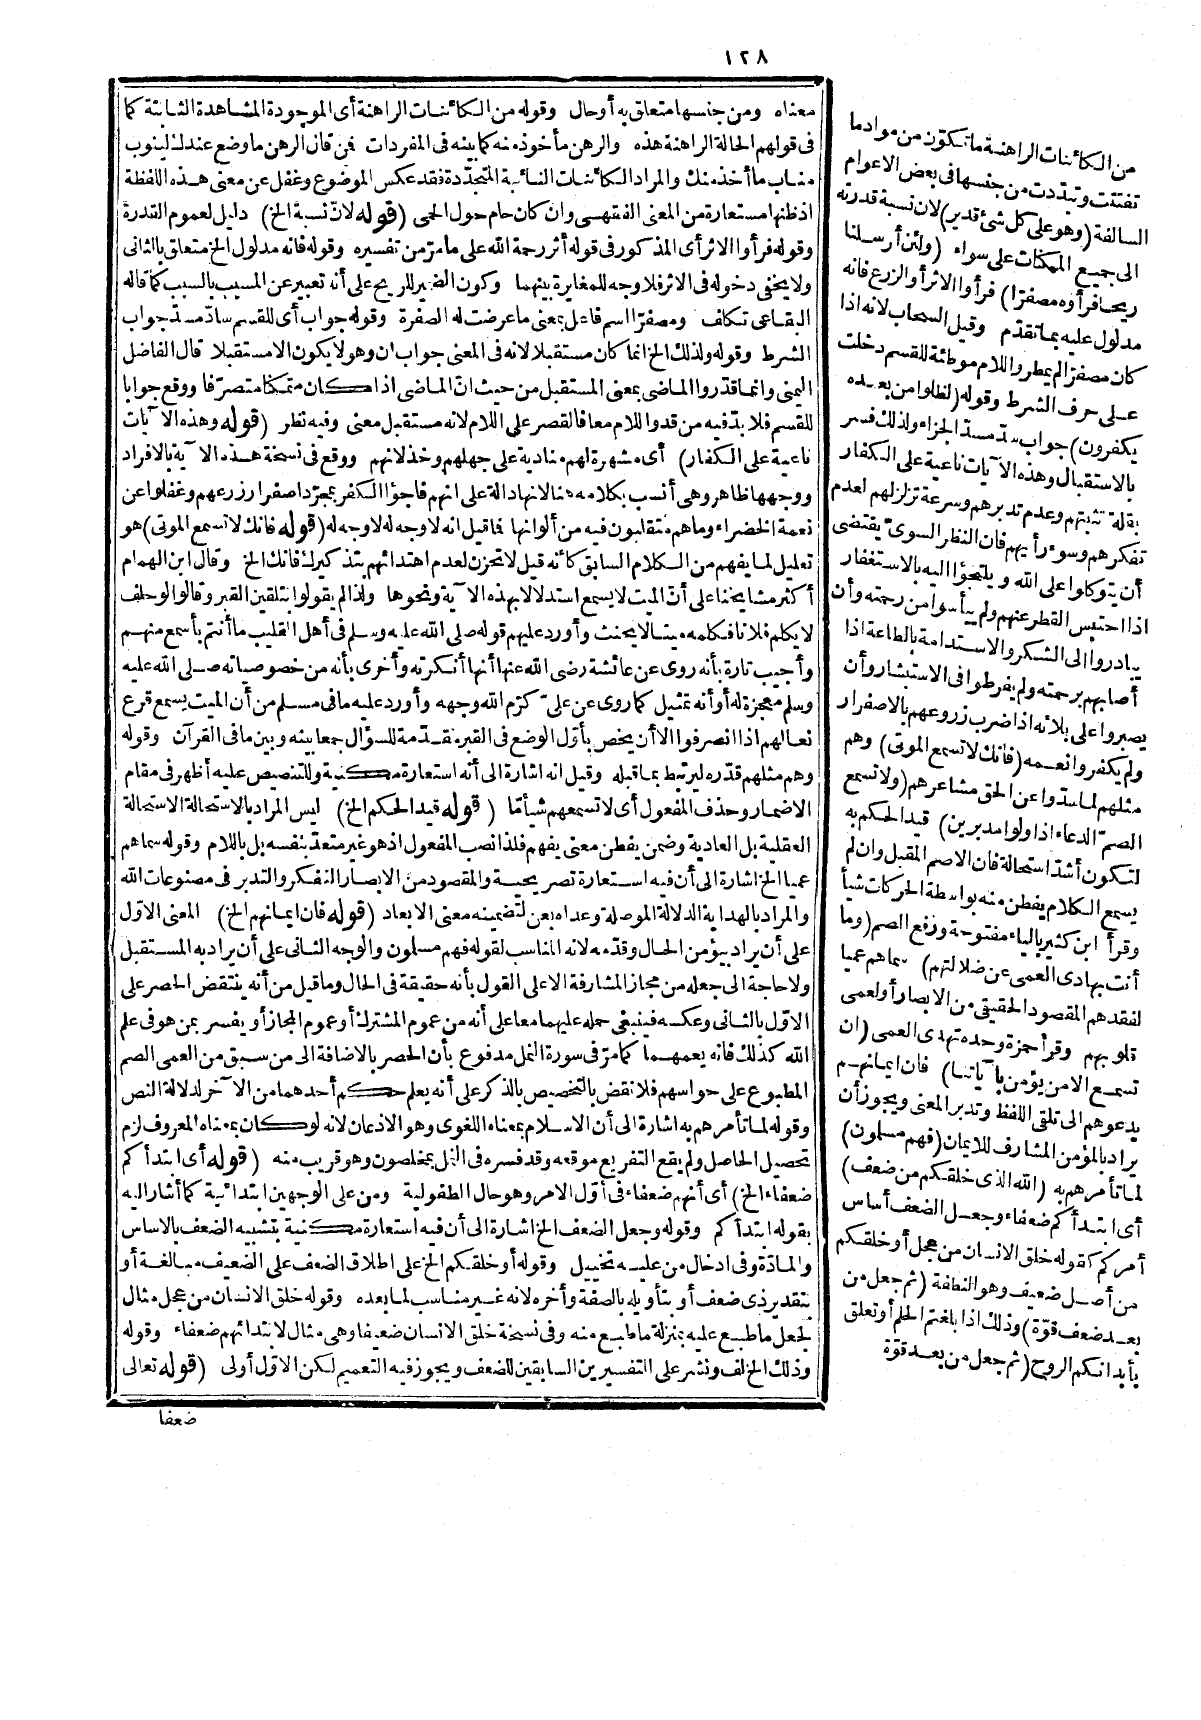 ١٢٨
من الكائنات الراهنة ما تكون من مواد ما
تفتتت وتبددت من جنسها فى بعض الاعوام
السالفة (وهو على كل شئ قدير) لان نسبة قدرته
الى جميع الممكات على سواء (ولئن أرسلنا
ريحا فرأوه مصفرّا) فرأوا الاثر أو الزرع فانه
مدلول عليه بما تقدّم وقيل السحاب لانه اذا
كان مصفرّا لم يمطر واللام موطئة للقسم دخلت
على حرف الشرط وقوله (لظلوا من بعده
يكفرون) جواب سدّ مسدّ الجزاء ولذلك فسر
بالاستقبال وهذه الآيات ناعية على الكفار
بقلة تثبتهم وعدم تدبرهم وسرعة تزلزلهم لعدم
تفكرهم وسوء رأيهم فان النظر السوىّ يقتضى
أن يتوكلوا على الله ويلتجؤا اليه بالاستغفار
اذا احتبس القطر عنهم ولم ييأسوا من رحمته وأن
يبادروا الى الشكر والاستدامة بالطاعة اذا
أصابهم برحمته ولم يفرطوا فى الاستبشار وأن
يصبروا على بلائه اذا ضرب زروعهم بالاصفرار
ولم يكفروا نعمه (فانك لا تسمع الموتى) وهم
مثلهم لما سدّوا عن الحق مشاعرهم (ولا تسمع
الصمّ الدعاء اذا ولوا مدبرين) قيد الحكم به
لتكون أشدّ استحالة فان الاصم المقبل وان لم
يسمع الكلام يفطن منه بواسطة الحركات شيأ
وقرأ ابن كثير بالياء مفتوحة ورفع الصم (وما
أنت بهادى العمى عن ضلالتهم) سماهم عميا
لفقدهم المقصود الحقيقى من الابصار أو لعمى
قلوبهم وقرأ حمزة وحده تهدى العمى (ان
تسمع الا من يؤمن بآياتنا) فان ايمانهم
يدعوهم الى تلقى اللفظ وتدبر المعنى ويجوز أن
يراد بالمؤمن المشارف للايمان (فهم مسلمون)
لما تأمرهم به (الله الذى خلقكم من ضعف)
أى ابتدأكم ضعفاء وجعل الضعف أساس
أمركم كقوله خلق الانسان من عجل أو خلقكم
من أصل ضعيف وهو النطفة (ثم جعل من
بعد ضعف قوّة) وذلك اذا بلغتم الحلم أو تعلق
بأبدانكم الروح (ثم جعل من بعد قوّة
معناه ومن جنسها متعلق به أو حال وقوله من الكائنات الراهنة أى الموجودة المشاهدة الثابتة كما
فى قولهم الحالة الراهنة هذه والرهن مأخوذ منه كما بينه فى المفردات فمن قال الرهن ما وضع عندك لينوب
مناب ما أخذ منك والمراد الكائنات النائبة المتجدّدة فقد عكس الموضوع وغفل عن معنى هذه اللفظة
اذ ظنها مستعارة من المعنى الفقهى وان كان حام حول الحمى (قوله لانّ نسبة الخ) دليل لعموم القدرة
وقوله فرأوا الاثر أى المذكور فى قوله أثر رحمة الله على ما مرّ من تفسيره وقوله فانه مدلول الخ متعلق بالثانى
ولا يخفى دخوله فى الاثر فلا وجه للمغايرة بينهما وكون الضمير للريح على أنه تعبير عن المسبب بالسبب كما قاله
البقاعى تكلف ومصفرّا اسم فاعل بمعنى ما عرضت له الصفرة وقوله جواب أى للقسم سادّ مسدّ جواب
الشرط وقوله ولذلك الخ انما كان مستقبلا لانه فى المعنى جواب ان وهو لا يكون الا مستقبلا قال الفاضل
اليمنى وانما قدّروا الماضى بمعنى المستقبل من حيث انّ الماضى اذا كان متمكنا متصرّفا ووقع جوابا
للقسم فلا بدّ فيه من قد واللام معا فالقصر على اللام لانه مستقبل معنى وفيه نظر (قوله وهذه الآيات
ناعية على الكفار) أى مشهرة لهم منادية على جهلهم وخذلانهم ووقع فى نسخة هذه الآية بالافراد
ووجهها ظاهر وهى أنسب بكلامه هنا لانها دالة على انهم فاجؤا الكفر بمجرّد اصفرار زرعهم وغفلوا عن
نعمة الخضراء وما هم متقلبون فيه من ألوانها فما قيل انه لا وجه له لا وجه له (قوله فانك لا تسمع الموتى) هو
تعليل لما يفهم من الكلام السابق كأنه قيل لا تحزن لعدم اهتدائهم بتذكيرك فانك الخ وقال ابن الهمام
أكثر مشايخنا على أنّ الميت لا يسمع استدلالا بهذه الآية ونحوها ولذا لم يقولوا بتلقين القبر وقالوا لو حلف
لا يكلم فلانا فكلمه ميتا لا يحنث وأورد عليهم قوله صلى الله عليه وسلم فى أهل القليب ما أنتم بأسمع منهم
وأجيب تارة بأنه روى عن عائشة رضى الله عنها أنها أنكرته وأخرى بأنه من خصوصياته صلى الله عليه
وسلم معجزة له أو أنه تمثيل كما روى عن علىّ كرّم الله وجهه وأورد عليه ما فى مسلم من أن الميت يسمع قرع
نعالهم اذا انصرفوا الا أن يخص بأوّل الوضع فى القبر مقدّمة للسؤال جمعا بينه وبين ما فى القرآن وقوله
وهم مثلهم قدّره ليرتبط بما قبله وقيل انه اشارة الى أنه استعارة مكنية وللتنصيص عليه أظهر فى مقام
الاضمار وحذف المفعول أى لا تسمعهم شيأ مّا (قوله قيد الحكم الخ) ليس المراد بالاستحالة الاستحالة
العقلية بل العادية وضمن يفطن معنى يفهم فلذا نصب المفعول اذ هو غير متعدّ بنفسه بل باللام وقوله سماهم
عميا الخ اشارة الى أن فيه استعارة تصريحية والمقصود من الابصار التفكر والتدبر فى مصنوعات الله
والمراد بالهداية الدلالة الموصلة وعداه بعن لتضمينه معنى الابعاد (قوله فان ايمانهم الخ) المعنى الاوّل
على أن يراد بيؤمن الحال وقدّمه لانه المناسب لقوله فهم مسلمون والوجه الثانى على أن يراد به المستقبل
ولا حاجة الى جعله من مجاز المشارفة الا على القول بأنه حقيقة فى الحال وما قيل من أنه ينتقض الحصر على
الاوّل بالثانى وعكسه فينبغى حمله عليهما معا على أنه من عموم المشترك أو عموم المجاز أو يفسر بمن هو فى علم
الله كذلك فانه يعمهما كما مرّ فى سورة النمل مدفوع بأن الحصر بالاضافة الى من سبق من العمى الصم
المطبوع على حواسهم فلا نقض بالتخصيص بالذكر على أنه يعلم حكم أحدهما من الآخر لدلالة النص
وقوله لما تأمرهم به اشارة الى أن الاسلام بمعناه اللغوى وهو الاذعان لانه لو كان بمعناه المعروف لزم
تحصيل الحاصل ولم يقع التفريع موقعه وقد فسره فى النمل بمخلصون وهو قريب منه (قوله أى ابتدأكم
ضعفاء الخ) أى أنهم ضعفاء فى أوّل الامر وهو حال الطفولية ومن على الوجهين ابتدائية كما أشار اليه
بقوله ابتدأكم وقوله وجعل الضعف الخ اشارة الى أن فيه استعارة مكنية بتشبيه الضعف بالاساس
والمادّة وفى ادخال من عليه تخييل وقوله أو خلقكم الخ على اطلاق الضعف على الضعيف مبالغة أو
بتقدير ذى ضعف أو بتأويله بالصفة وأخره لانه غير مناسب لما بعده وقوله خلق الانسان من عجل مثال
لجعل ما طبع عليه بمنزلة ما طبع منه وفى نسخة خلق الانسان ضعيفا وهى مثال لابتدائهم ضعفاء وقوله
وذلك الخ لف ونشر على التفسيرين السابقين للضعف ويجوز فيه التعميم لكن الاوّل أولى (قوله تعالى
ضعفا